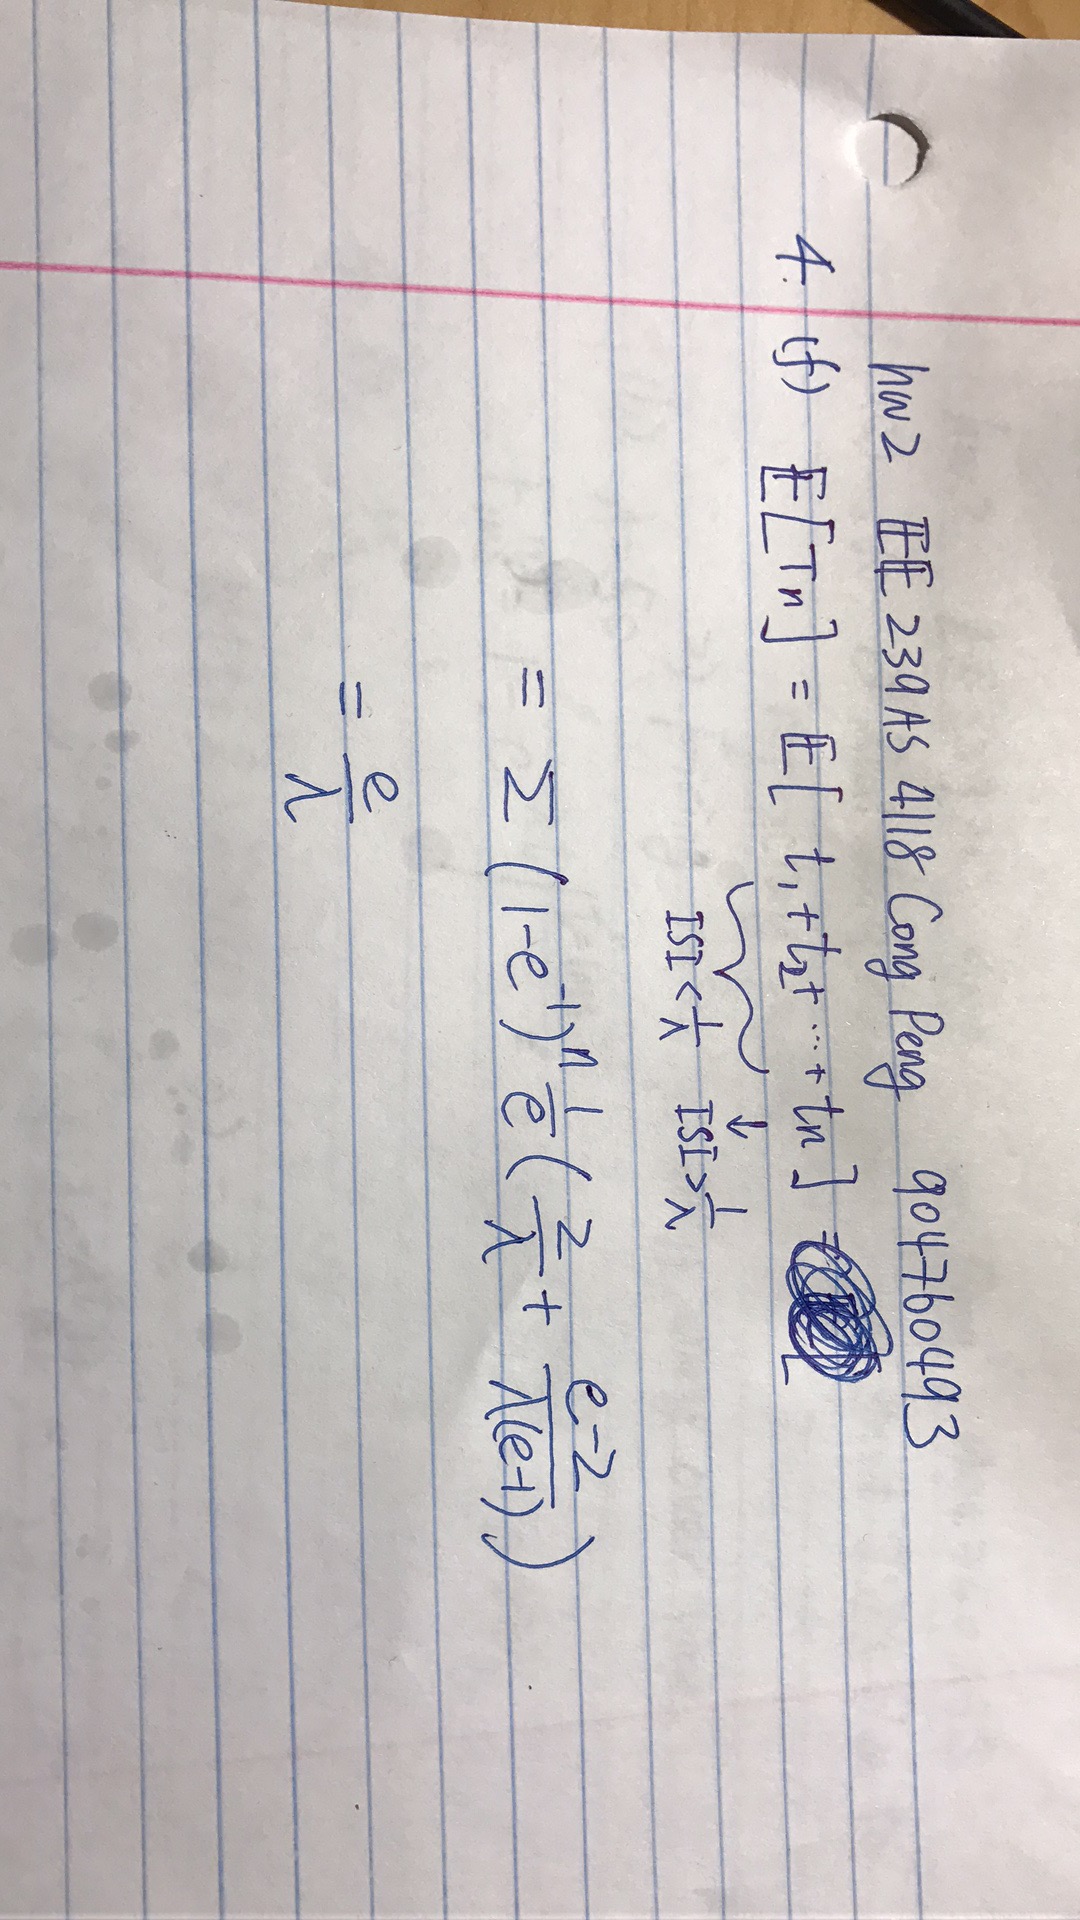 hw2 EE 239AS 4118 Cong Peng 904760493
4. (f) E[Tn] = E[ t₁+t₂+...+tn] =
ISI < 1/λ ↓ ISI > 1/λ
= Σ (1-e⁻¹)ⁿ 1/e ( 2/λ + e-2/λ(e-1) )
= e/λ